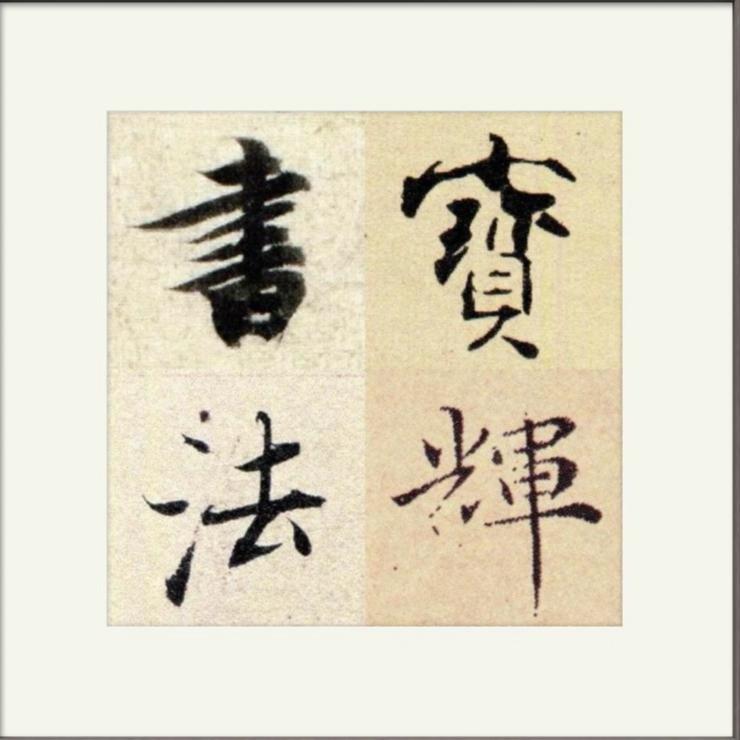 寶輝
書法